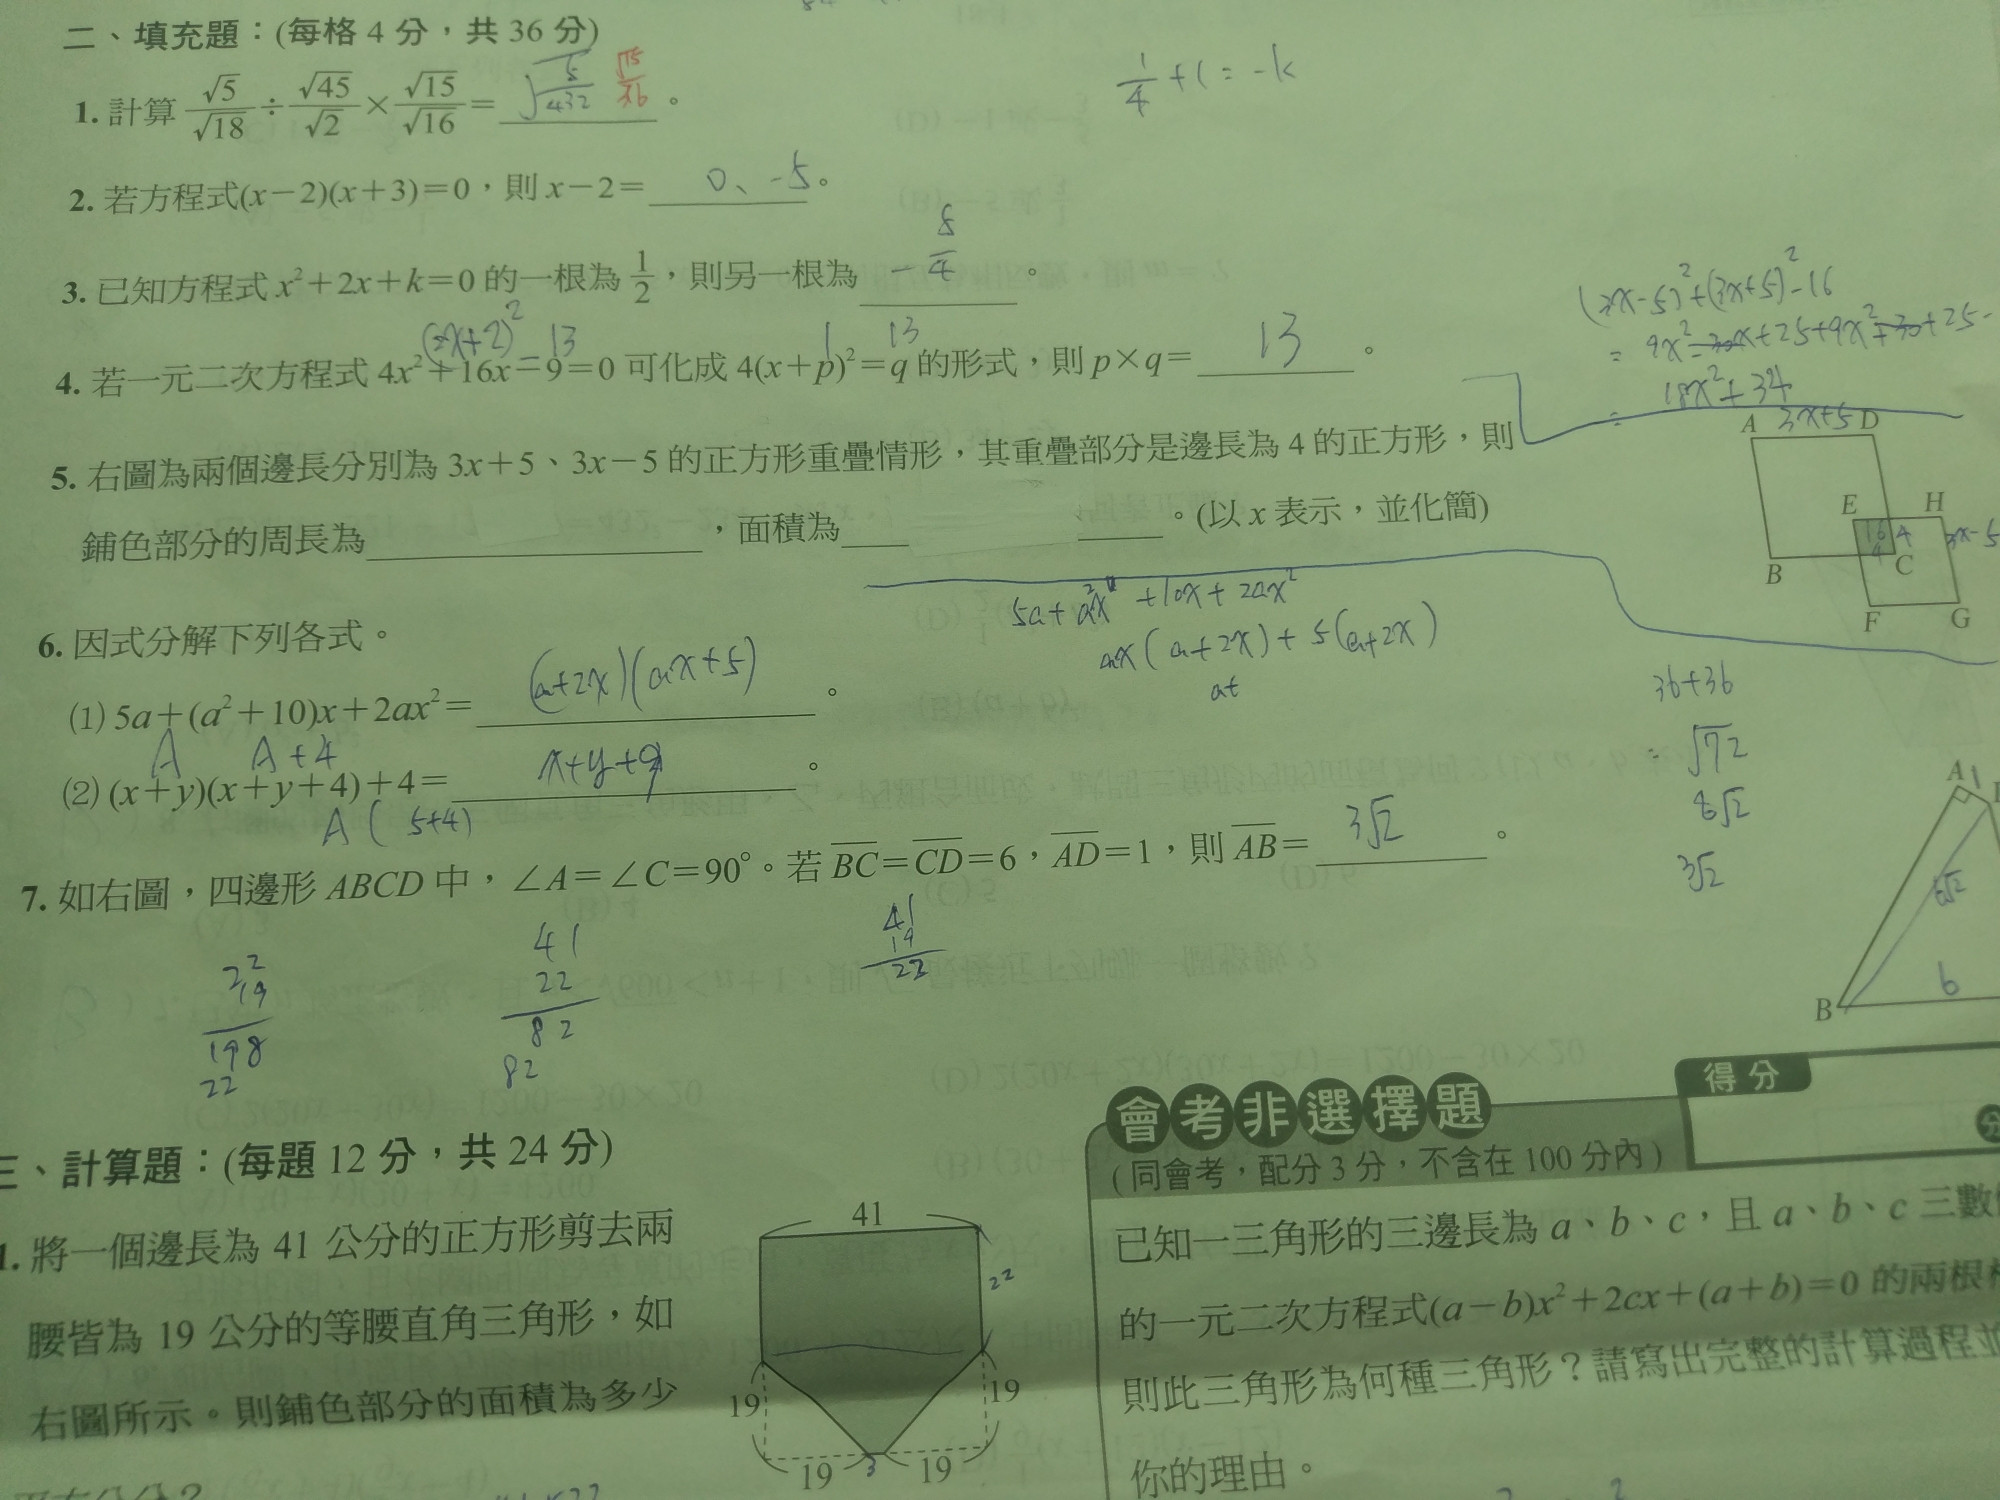 二、填充題：(每格 4 分，共 36 分)
1. 計算 √5/√18 ÷ √45/√2 × √15/√16 = √(5/432) √15/36 。
1/4 + 1 = -k
2. 若方程式(x－2)(x＋3)＝0，則 x－2＝ 0、-5。
3. 已知方程式 x²＋2x＋k＝0 的一根為 1/2，則另一根為 - 5/4 。
(2x+2)² = 13
1 13
4. 若一元二次方程式 4x²＋16x－9＝0 可化成 4(x＋p)²＝q 的形式，則 p×q＝ 13 。
(3x-5)²+(3x+5)²-16
= 9x²-30x+25+9x²+30+25-
= 18x²+34
5. 右圖為兩個邊長分別為 3x＋5、3x－5 的正方形重疊情形，其重疊部分是邊長為 4 的正方形，則
鋪色部分的周長為，面積為。(以 x 表示，並化簡)
A 3x+5 D
E H
16 4 3x-5
4
B C
F G
6. 因式分解下列各式。
5a+a²x+10x+2ax²
ax(a+2x)+5(a+2x)
at
(1) 5a＋(a²＋10)x＋2ax²＝ (a+2x)(ax+5) 。
A A+4
(2) (x＋y)(x＋y＋4)＋4＝ x+y+9 。
A ( 5+4)
36+36
= √72
6√2
3√2
7. 如右圖，四邊形 ABCD 中，∠A＝∠C＝90°。若 BC＝CD＝6，AD＝1，則 AB＝ 3√2 。
A 1
6√2
B 6
22
19
198
22
41
22
82
82
41
19
23
三、計算題：(每題 12 分，共 24 分)
1. 將一個邊長為 41 公分的正方形剪去兩
腰皆為 19 公分的等腰直角三角形，如
右圖所示。則鋪色部分的面積為多少
41
22
19 19
19 3 19
會考非選擇題
得分
(同會考，配分 3 分，不含在 100 分內)
已知一三角形的三邊長為 a、b、c，且 a、b、c 三數
的一元二次方程式(a－b)x²＋2cx＋(a＋b)＝0 的兩根
則此三角形為何種三角形？請寫出完整的計算過程並
你的理由。